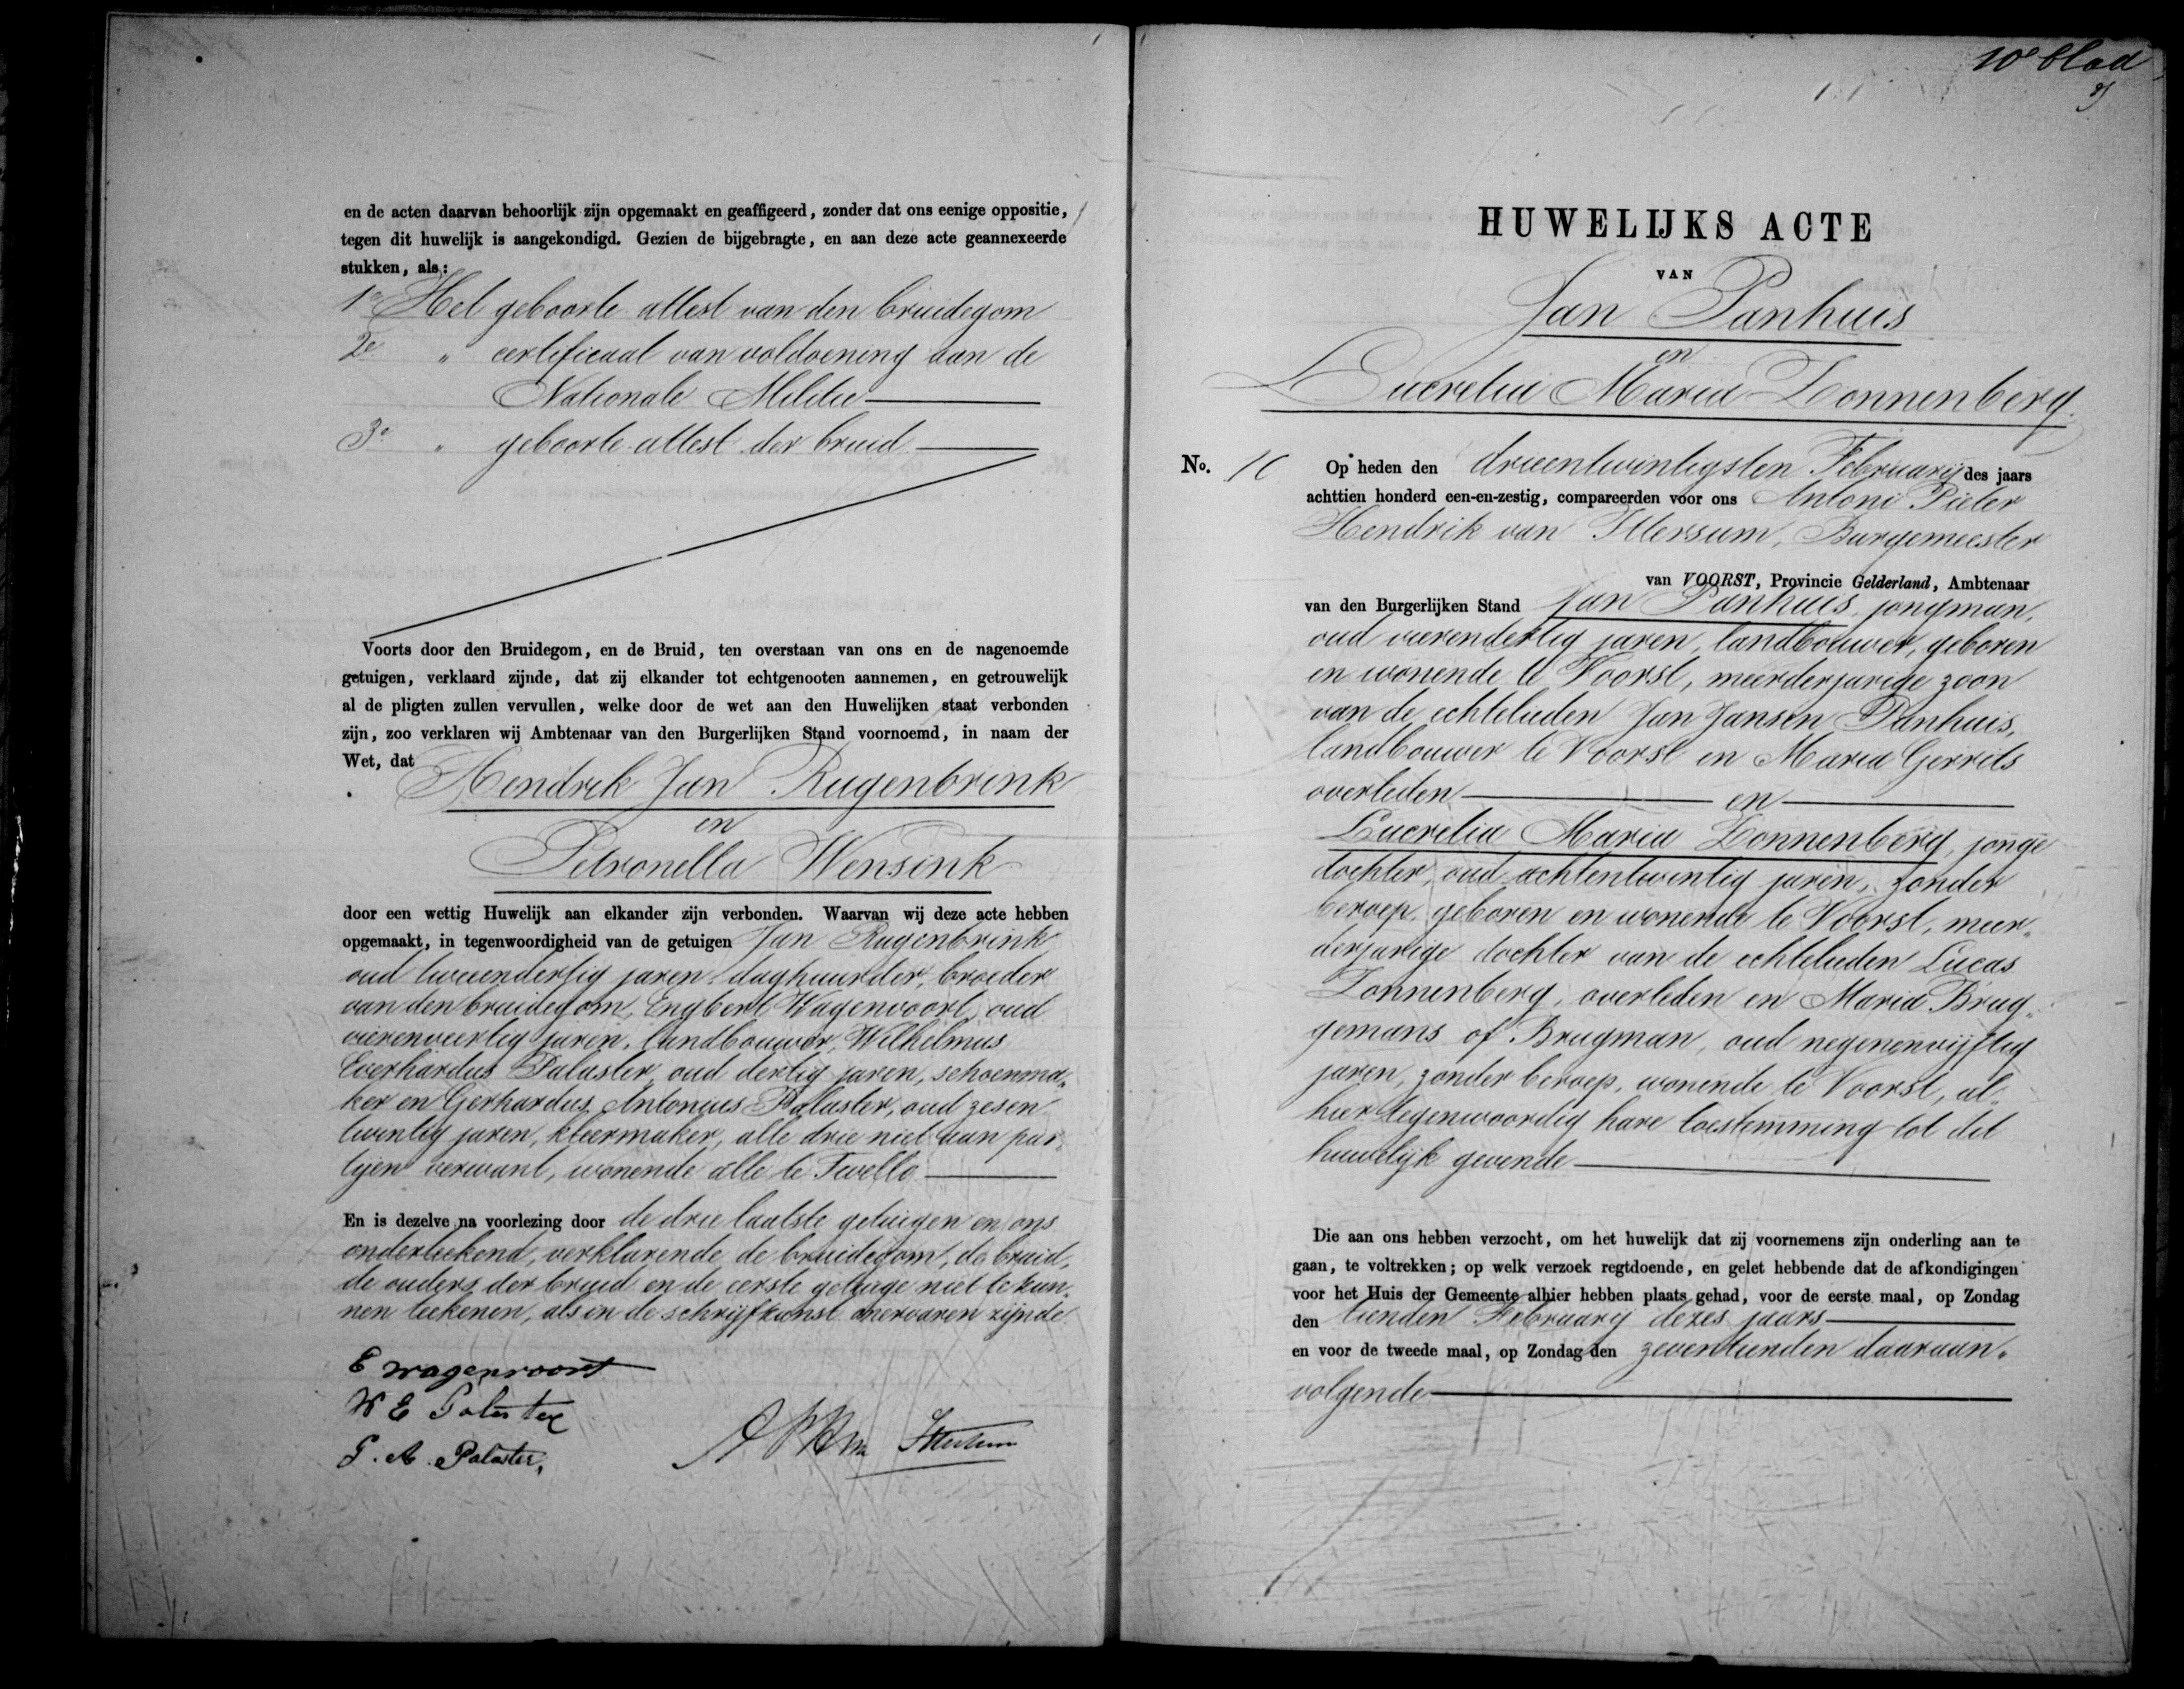 en de acten daarvan behoorlijk zijn opgemaakt en geaffigeerd, zonder dat ons eenige oppositie,
tegen dit huwelijk is aangekondigd. Gezien de bijgebragte, en aan deze acte geannexeerde
stukken, als:
1e Het geboorte attest van den bruidegom
2e " certificaat van voldoening aan de
Nationale Militie
3e " geboorte attest der bruid
Voorts door den Bruidegom, en de Bruid, ten overstaan van ons en de nagenoemde
getuigen, verklaard zijnde, dat zij elkander tot echtgenooten aannemen, en getrouwelijk
al de pligten zullen vervullen, welke door de wet aan den Huwelijken staat verbonden
zijn, zoo verklaren wij Ambtenaar van den Burgerlijken Stand voornoemd, in naam der
Wet, dat
Hendrik Jan Rugenbrink
en
Petronella Wensink
door een wettig Huwelijk aan elkander zijn verbonden. Waarvan wij deze acte hebben
opgemaakt, in tegenwoordigheid van de getuigen Jan Rugenbrink
oud tweeendertig jaren, daghuurder, broeder
van den bruidegom, Engbert Wagenvoort, oud
vierenveertig jaren, landbouwer, Wilhelmus
Everhardus Palaster oud dertig jaren, schoenma„
ker en Gerhardus Antonius Palaster, oud zesen
twintig jaren, kleermaker, alle drie niet aan par„
tijen verwant, wonende alle te Twello
En is dezelve na voorlezing door de drie laatste getuigen en ons
onderteekend, verklarende de bruidegom, de bruid,
de ouders der bruid en de eerste getuige niet te kun„
nen teekenen, als in de schrijfkunst onervaren zijnde
E wagenvoort
W E Palaster
G. A. Palaster,
10e blad
HUWELIJKS ACTE
VAN
Jan Panhuis
en
Lucretia Maria Zonnenberg
No. 10 Op heden den drieentwintigsten Februarij des jaars
achttien honderd een-en-zestig, compareerden voor ons Antoni Pieter
Hendrik van Ittersum, Burgemeester
van VOORST, Provincie Gelderland, Ambtenaar
van den Burgerlijken Stand Jan Panhuis, jongman,
oud vierendertig jaren, landbouwer, geboren
en wonende te Voorst, meerderjarige zoon
van de echtelieden Jan Jansen Panhuis,
landbouwer te Voorst en Maria Gerrits
overleden en
Lucretia Maria Zonnenberg, jonge
dochter, oud achtentwintig jaren, zonder
beroep, geboren en wonende te Voorst, meer„
derjarige dochter van de echtelieden Lucas
Zonnenberg, overleden en Maria Brug„
gemans of Brugman, oud negenenvijftig
jaren, zonder beroep, wonende te Voorst, al„
hier tegenwoordig hare toestemming tot dit
huwelijk gevende
Die aan ons hebben verzocht, om het huwelijk dat zij voornemens zijn onderling aan te
gaan, te voltrekken; op welk verzoek regtdoende, en gelet hebbende dat de afkondigingen
voor het Huis der Gemeente alhier hebben plaats gehad, voor de eerste maal, op Zondag
den tienden Februarij dezes jaars
en voor de tweede maal, op Zondag den zeventienden daaraan„
volgende